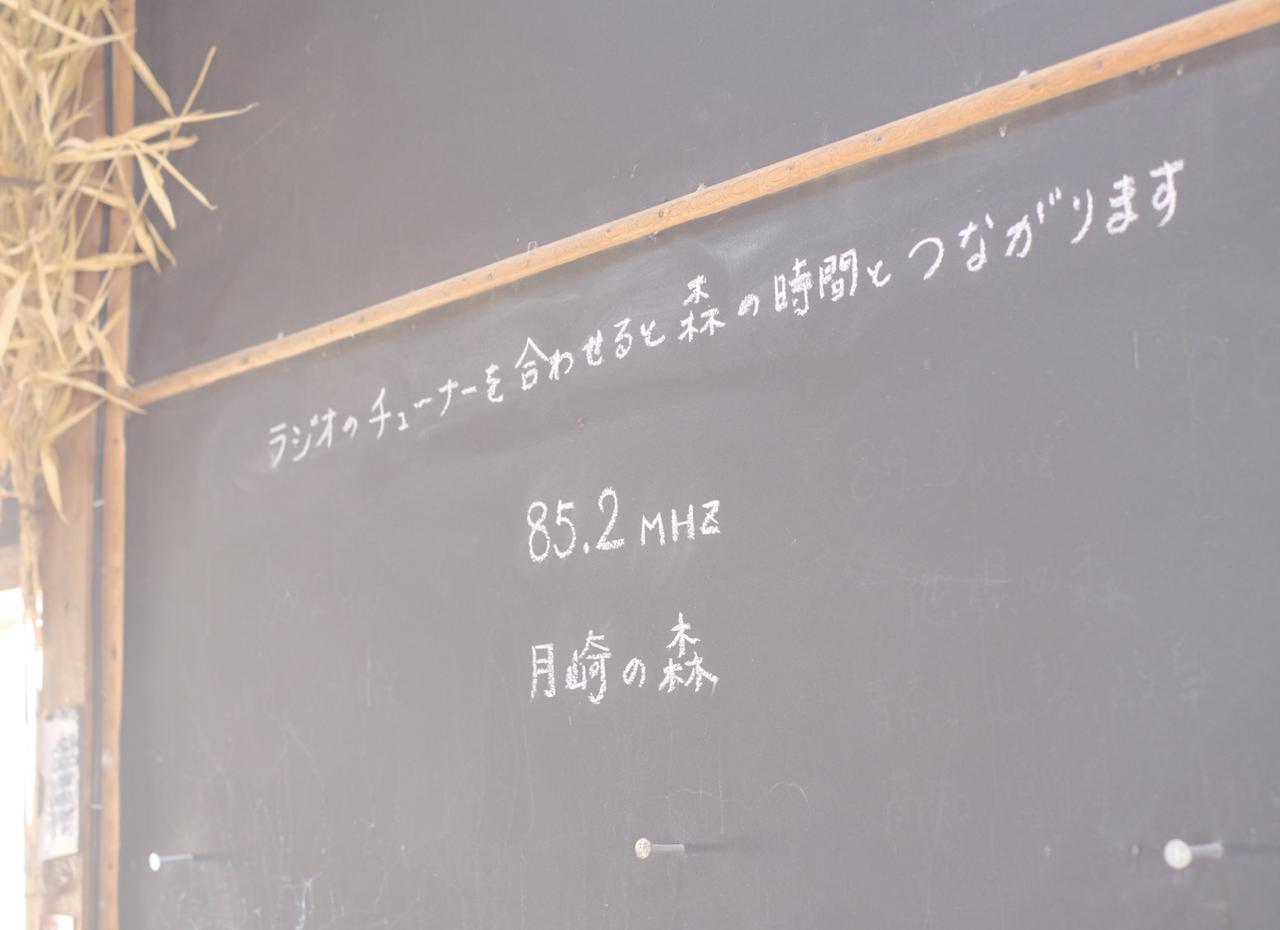 ラジオのチューナーを合わせると森の時間とつながります
85.2 MHZ
月崎の森